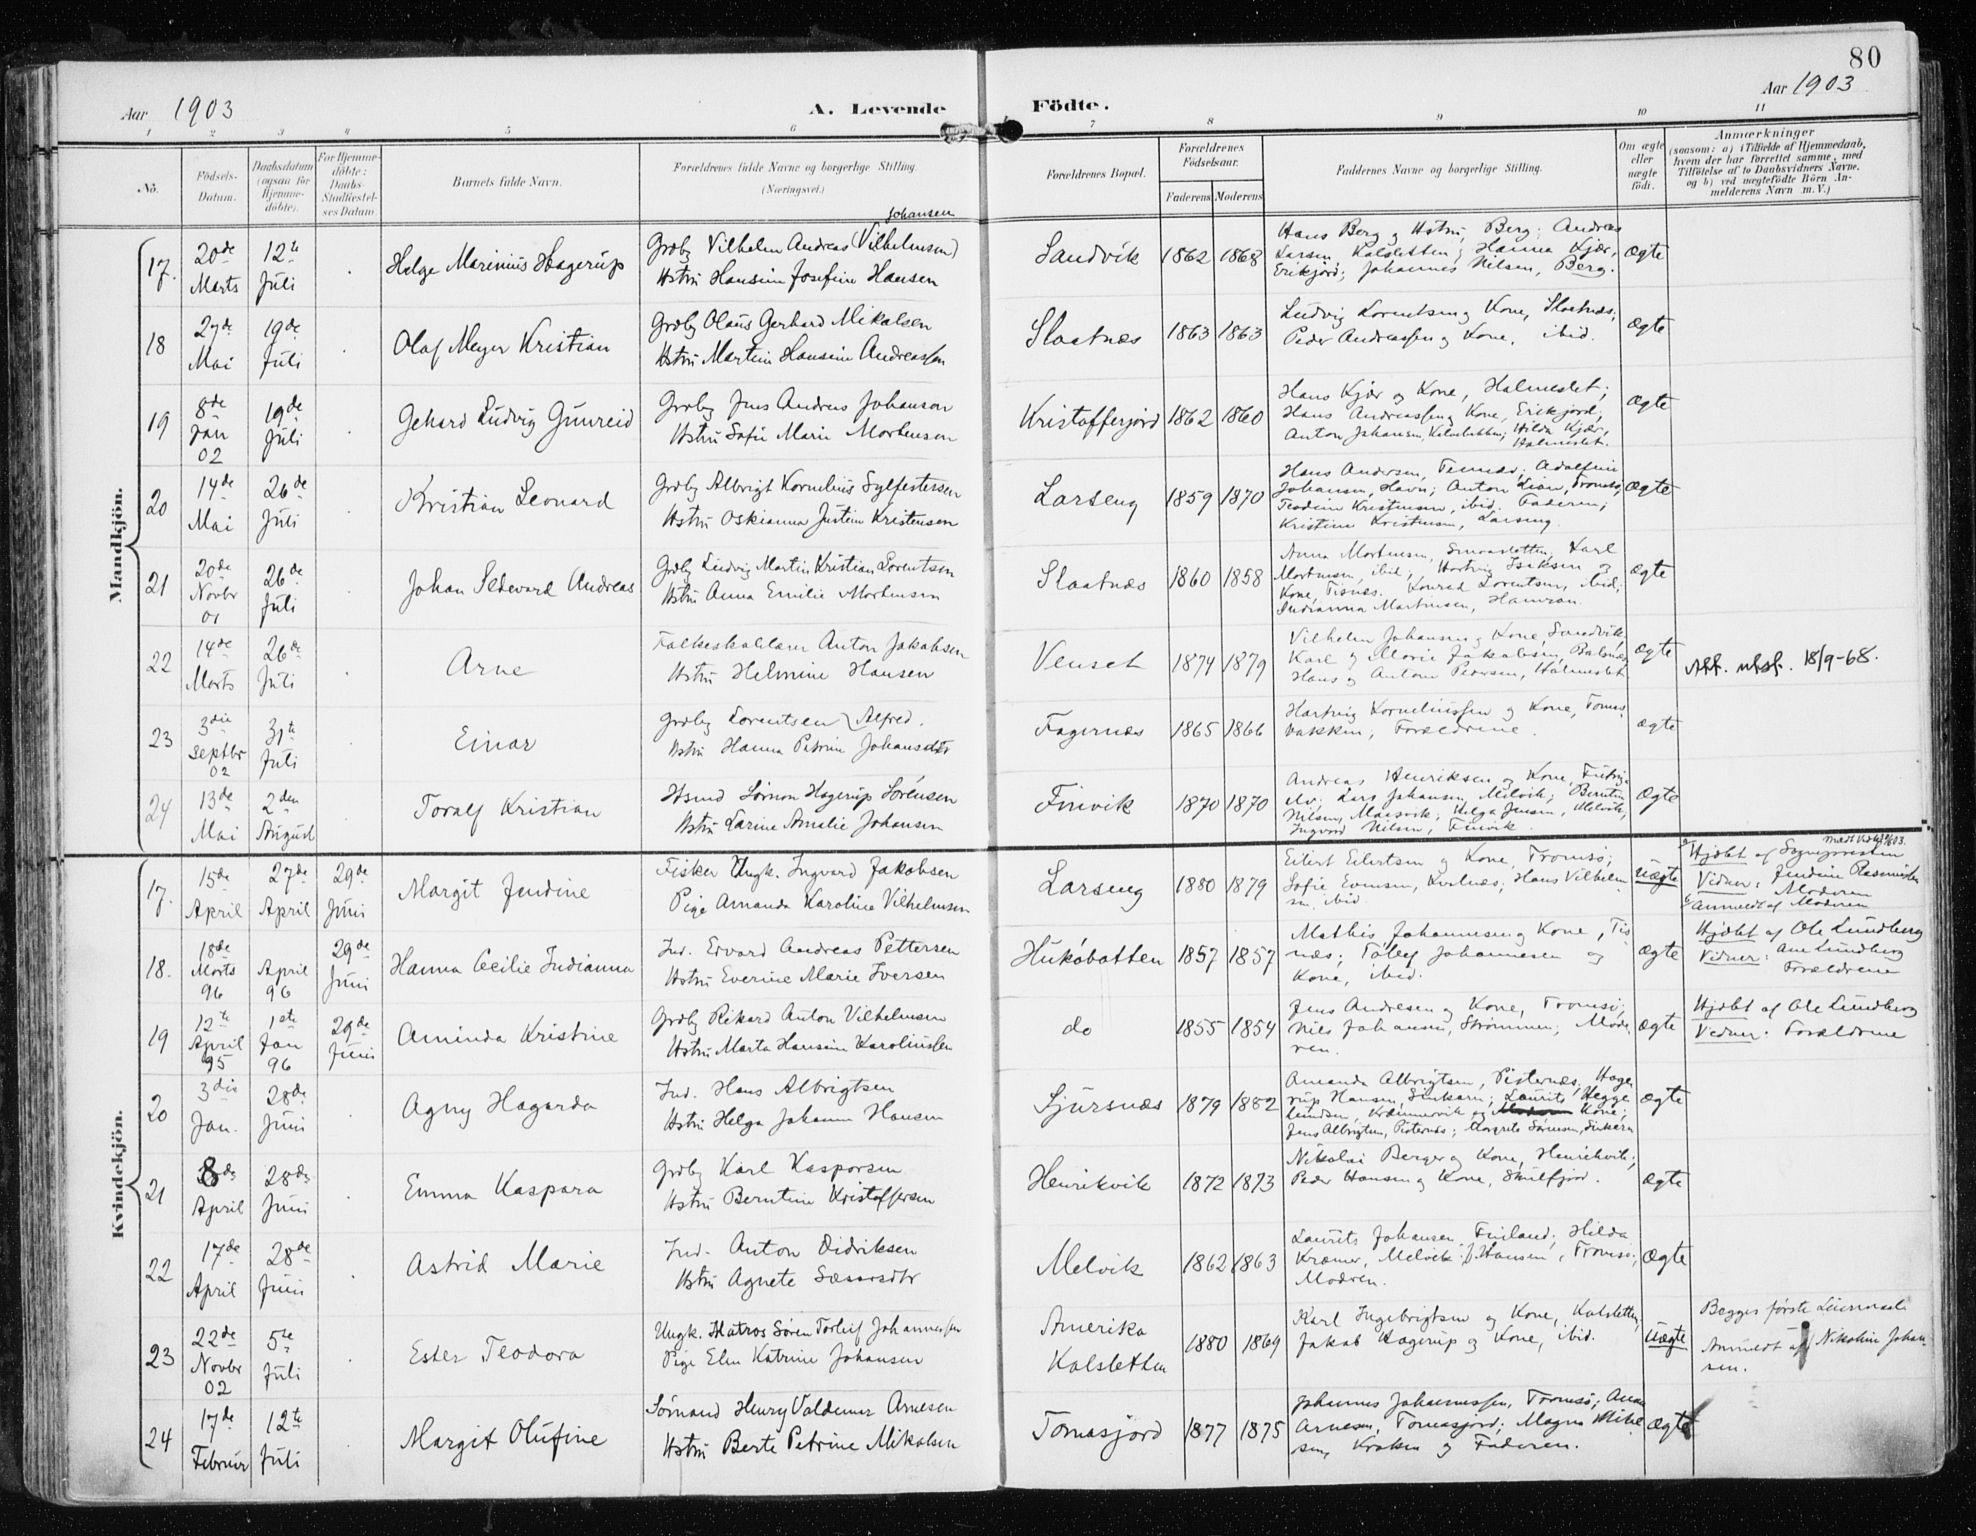 80
Aar 1903
A. Levende Födte.
Aar 1903
1 2 3 4 5 6 7 8 9 10 11
No.
Födsels-
Datum.
Daabsdatum
(ogsaa for
Hjemme-
döbte).
For Hjemme-
döbte:
Daabs-
Stadfæstel-
ses Datum.
Barnets fulde Navn.
Forældrenes fulde Navne og borgerlige Stilling.
(Næringsvei.)
Forældrenes Bopæl.
Forældrenes
Födselsaar.
Faderens Moderens
Faddernes Navne og borgerlige Stilling.
Om ægte
eller
uægte
födt.
Anmærkninger
(saasom: a) i Tilfælde af Hjemmedaab,
hvem der har forrettet samme, med
Tilföielse af to Daabsvidners Navne.
og b) ved uægtefödte Börn An-
melderens Navn m. V.)
Mandkjön.
17. 20de Marts 12te Juli Helge Marinius Hagerup
Johansen
Grdbr Vilhelm Andreas (Vilhelmsen)
Hstru Hansine Josefine Hansen
Sandvik 1862 1868
Hans Berg og Hstru, Berg; Andreas
Larsen, Kalsletten; Hanna Kjær,
Erikjord; Johannes Nilsen, Berg.
Ægte
18 27de Mai 19de Juli Olaf Meyer Kristian
Grdbr Olaus Gerhard Mikalsen
Hstru Martine Hansine Andreassen
Slaatnæs 1863 1863
Ludvig Lorentsen og Kone, Slaatnæs;
Peder Andreassen og Kone, ibid.
Ægte
19 8de Jan 02 19de Juli Gehard Ludvig Gunreid
Grdbr Jens Andreas Johanson
Hstru Sofie Marie Mortensen
Kristofferjord 1862 1860
Hans Kjær og Kone, Halmeslet;
Hans Andreassen og Kone, Erikjord;
Anton Johansen, Kalsletten; Hilda Kjær,
Halmeslet.
Ægte
20 14de Mai 26de Juli Kristian Leonard
Grdbr Albrigt Kornelius Sylfestersen
Hstru Oskianna Justine Kristensen
Larseng 1859 1870
Hans Andersen, Adolfine
Johansen, Havn; Anton Lian, Tromsø;
Teodine Kristensen, ibid. Faderen;
Kristine Kristensen, Larseng.
Ægte
21 20de Novbr 01 26de Juli Johan Sedevard Andreas
Grdbr Ludvig Martin Kristian Lorentsen
Hstru Anna Emilie Mortensen
Slaatnæs 1860 1858
Anna Mortensen, Karl
Mortensen, ibid; Hartvig Isaksen og
Kone, Tisnes. Konrad Lorentsen, ibid;
Indianna Martinsen,
Ægte
22 14de Marts 26de Juli Arne
Anton Jakobsen
Hstru Helmine Hansen
Venset 1874 1879
Vilhelm Johansen og Kone, Sandvik,
Karl og Marie Jakobsen,
Hans og Antone Pedersen, Halmeslet
Ægte
Aff. utsf. 18/9-68.
23 3die Septbr 02 31te Juli Einar
Grdbr Lorentsen Alfred.
Hstru Hanna Petrine
Fagernæs 1865 1866
Hartvig Korneliussen og Kone, Tomas-
vakken, Forældrene.
ægte
24 13de Mai 2den August Toralf Kristian
Hsmd Simon Hagerup Sørensen
Hstru Larine Amalie Johansen
Finvik 1870 1870
Andreas Henriksen og Kone,
Elv; Lars Johansen, Melvik; Berntine
Nilsen, Helga Jensen, Melvik;
Ingvard Nilsen, Finvik.
Ægte
Kvindekjön.
17. 15de April 27de April 29de Juni Margit Jendine
Fisker Ungk. Ingvard Jakobsen
Pige Amanda Karoline Vilhelmsen
Larseng 1880 1879
Eilert Eilertsen og Kone, Tromsø;
Sofie Evensen, Hans Vilhelm-
sen ibid
uægte
Hjdbt af Sognepresten
Vidner: Jendine Rasmussen
Moderen
Anmeldt af Moderen
18. 18de Marts 96 April 96 29de Juni Hanna Cecilie Indianna
Ind. Edvard Andreas Pettersen
Hstru Everine Marie Iversen
Hukøbotten 1857 1857
Mathis Johannesen og Kone, Tis-
næs; Tollef Johannesen og
Kone, ibid.
ægte
Hjdbt af Ole Lundberg
Vidner: Ane Lundberg
Forældrene
19 12te April 95 1ste Jan 96 29de Juni Aminda Kristine
Grdbr Rikard Anton Vilhelmsen
Hstru Marta Hansine Karoliussen
do 1855 1854
Jens Andresen og Kone, Tromsø;
Nils Johansen, Strømmen; Mode-
ren.
ægte
Hjdbt af Ole Lundberg
Vidner: Forældrene
20 3die Jan. 28de Juni Agny Hagarda
Ind. Hans Albrigtsen
Hstru Helga Johanne Hansen
Sjursnæs 1879 1882
Amanda Albrigtsen, Pisternæs; Hage-
rup Hansen, Laurits Hegge-
lundsen, og Kone;
Jens Albrigtsen, Pisternæs; Margrete Sørensen,
ægte
21 8de April 28de Juni Emma Kaspara
Grdbr Karl Kaspersen
Hstru Berntine Kristoffersen
Henrikvik 1872 1873
Nikolai Berger og Kone, Henrikvik;
Peder Hansen og Kone, Skulfjord.
ægte
22 17de April 28de Juni Astrid Marie
Ind. Anton Didriksen
Hstru Agnete
Melvik 1862 1863
Laurits Johansen, Finland; Hilda
Kræmer, Melvik; J. Hansen, Tromsø;
Modren.
ægte
23 22de Novbr 02 5te Juli Ester Teodora
Ungk. Matros Søren Torleif Johannessen
Pige Elen Katrine Johansen
Amerika
Kalsletten
1880 1869
Karl Ingebrigtsen og Kone, Kalsletten;
Jakob Hagerup og Kone, ibid.
uægte
Begges første Leiermaal
Anmeldt af Nikoline Johan-
sen.
24 17de Februar 12te Juli Margit Olufine
Sømand Henry Valdemar Arnesen
Hstru Berte Petrine Mikalsen
Tomasjord 1877 1875
Johannes Johannessen, Tromsø; Anna
Arnesen, Tomasjord; Magna Mikal-
sen, Kroken og Faderen.
ægte